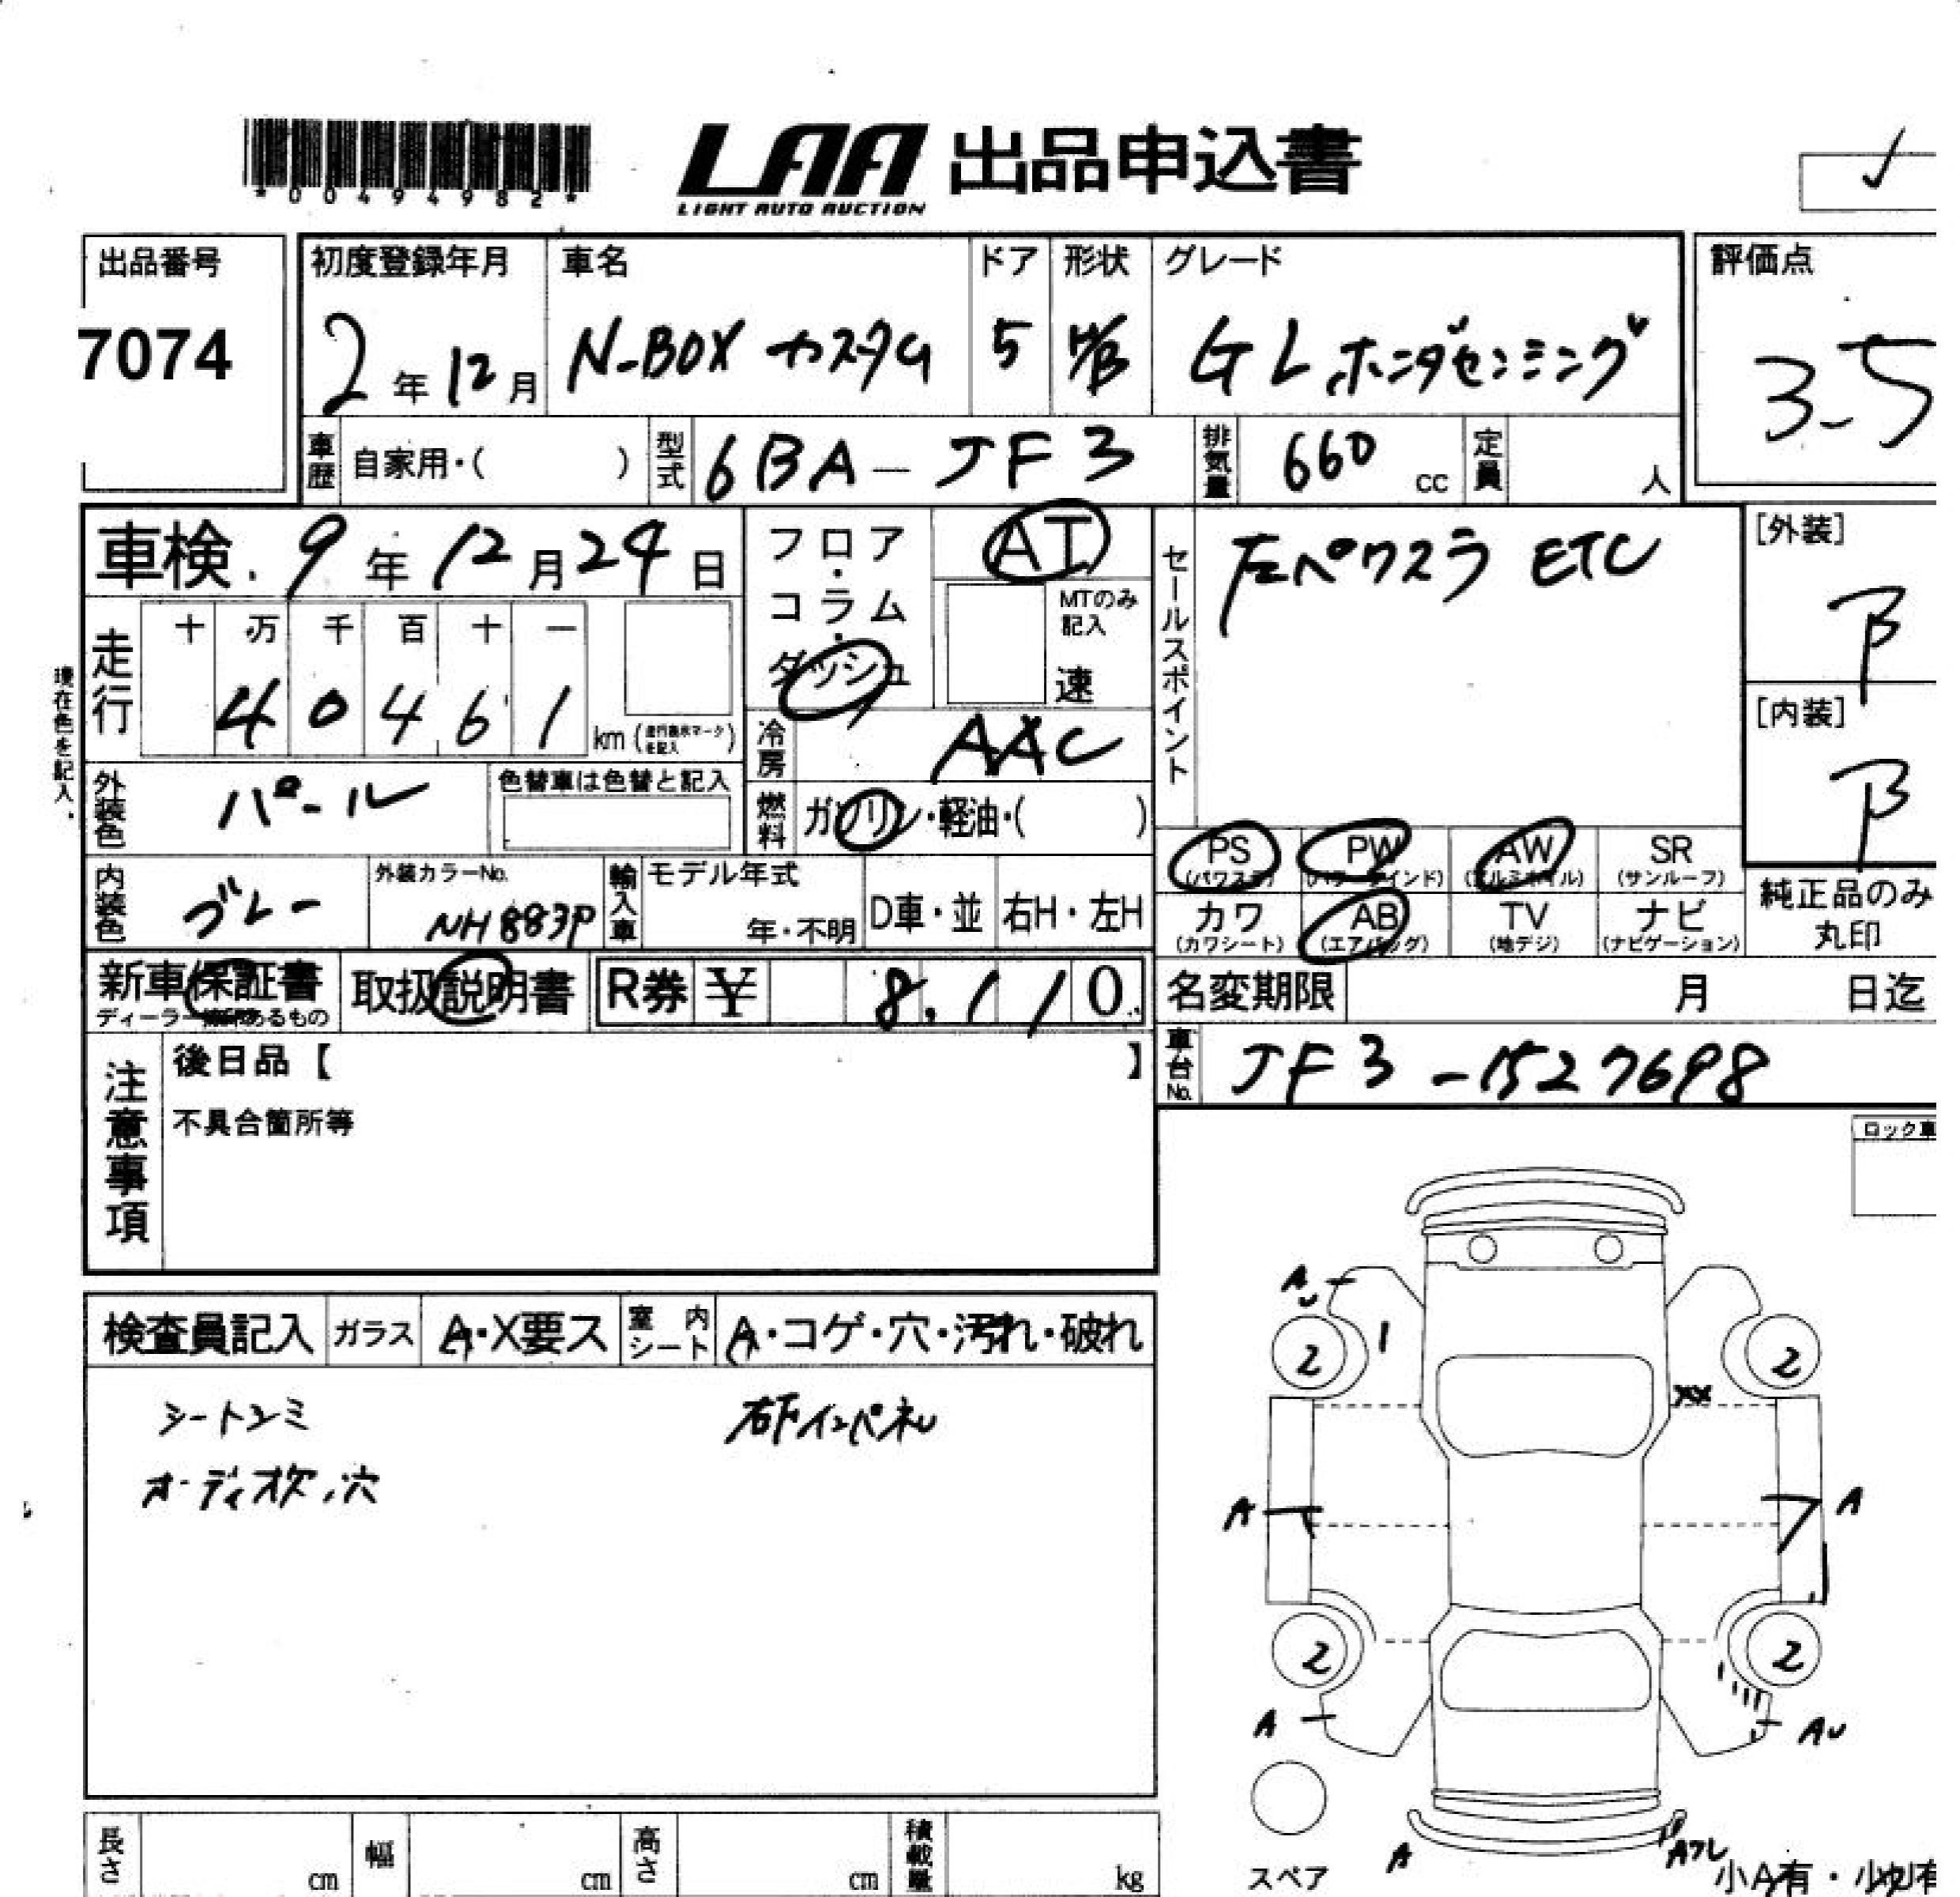 *0049482*
LAA 出品申込書
LIGHT AUTO AUCTION
出品番号
7074
初度登録年月
2年12月
車名
N-BOX カスタム
ドア
5
形状
H/B
グレード
GL ホンダセンシング
評価点
3.5
車歴
自家用・( )
型式
6BA-JF3
排気量
660 cc
定員
人
車検 9年12月24日
走行
十 万 千 百 十 一
4 0 4 6 1
km (走行表示マークを記入)
現在色を記入。
フロア・コラム・ダッシュ
AT
MTのみ記入
速
冷房
AAC
燃料
ガソリン・軽油・( )
外装色
パール
色替車は色替と記入
内装色
グレー
外装カラーNo.
NH883P
輸入車
モデル年式
年・不明
D車・並
右H・左H
セールスポイント
左パワスラ ETC
[外装]
B
[内装]
B
PS
(パワステ)
PW
(パワーウインド)
AW
(アルミホイル)
SR
(サンルーフ)
カワ
(カワシート)
AB
(エアバッグ)
TV
(地デジ)
ナビ
(ナビゲーション)
純正品のみ
丸印
新車保証書
ディーラー捺印あるもの
取扱説明書
R券 ¥ 8,110
名変期限 月 日迄
車台No.
JF3-1527698
注意事項
後日品【 】
不具合箇所等
ロック車
検査員記入
ガラス
A・X要ス
室内シート
A・コゲ・穴・汚れ・破れ
シートシミ
オーディオ欠、穴
右下インパネル
A
1
2
2
XX
A
A
2
2
A
AU
A
スペア
長さ cm
幅 cm
高さ cm
積載量 kg
小A有・小U有